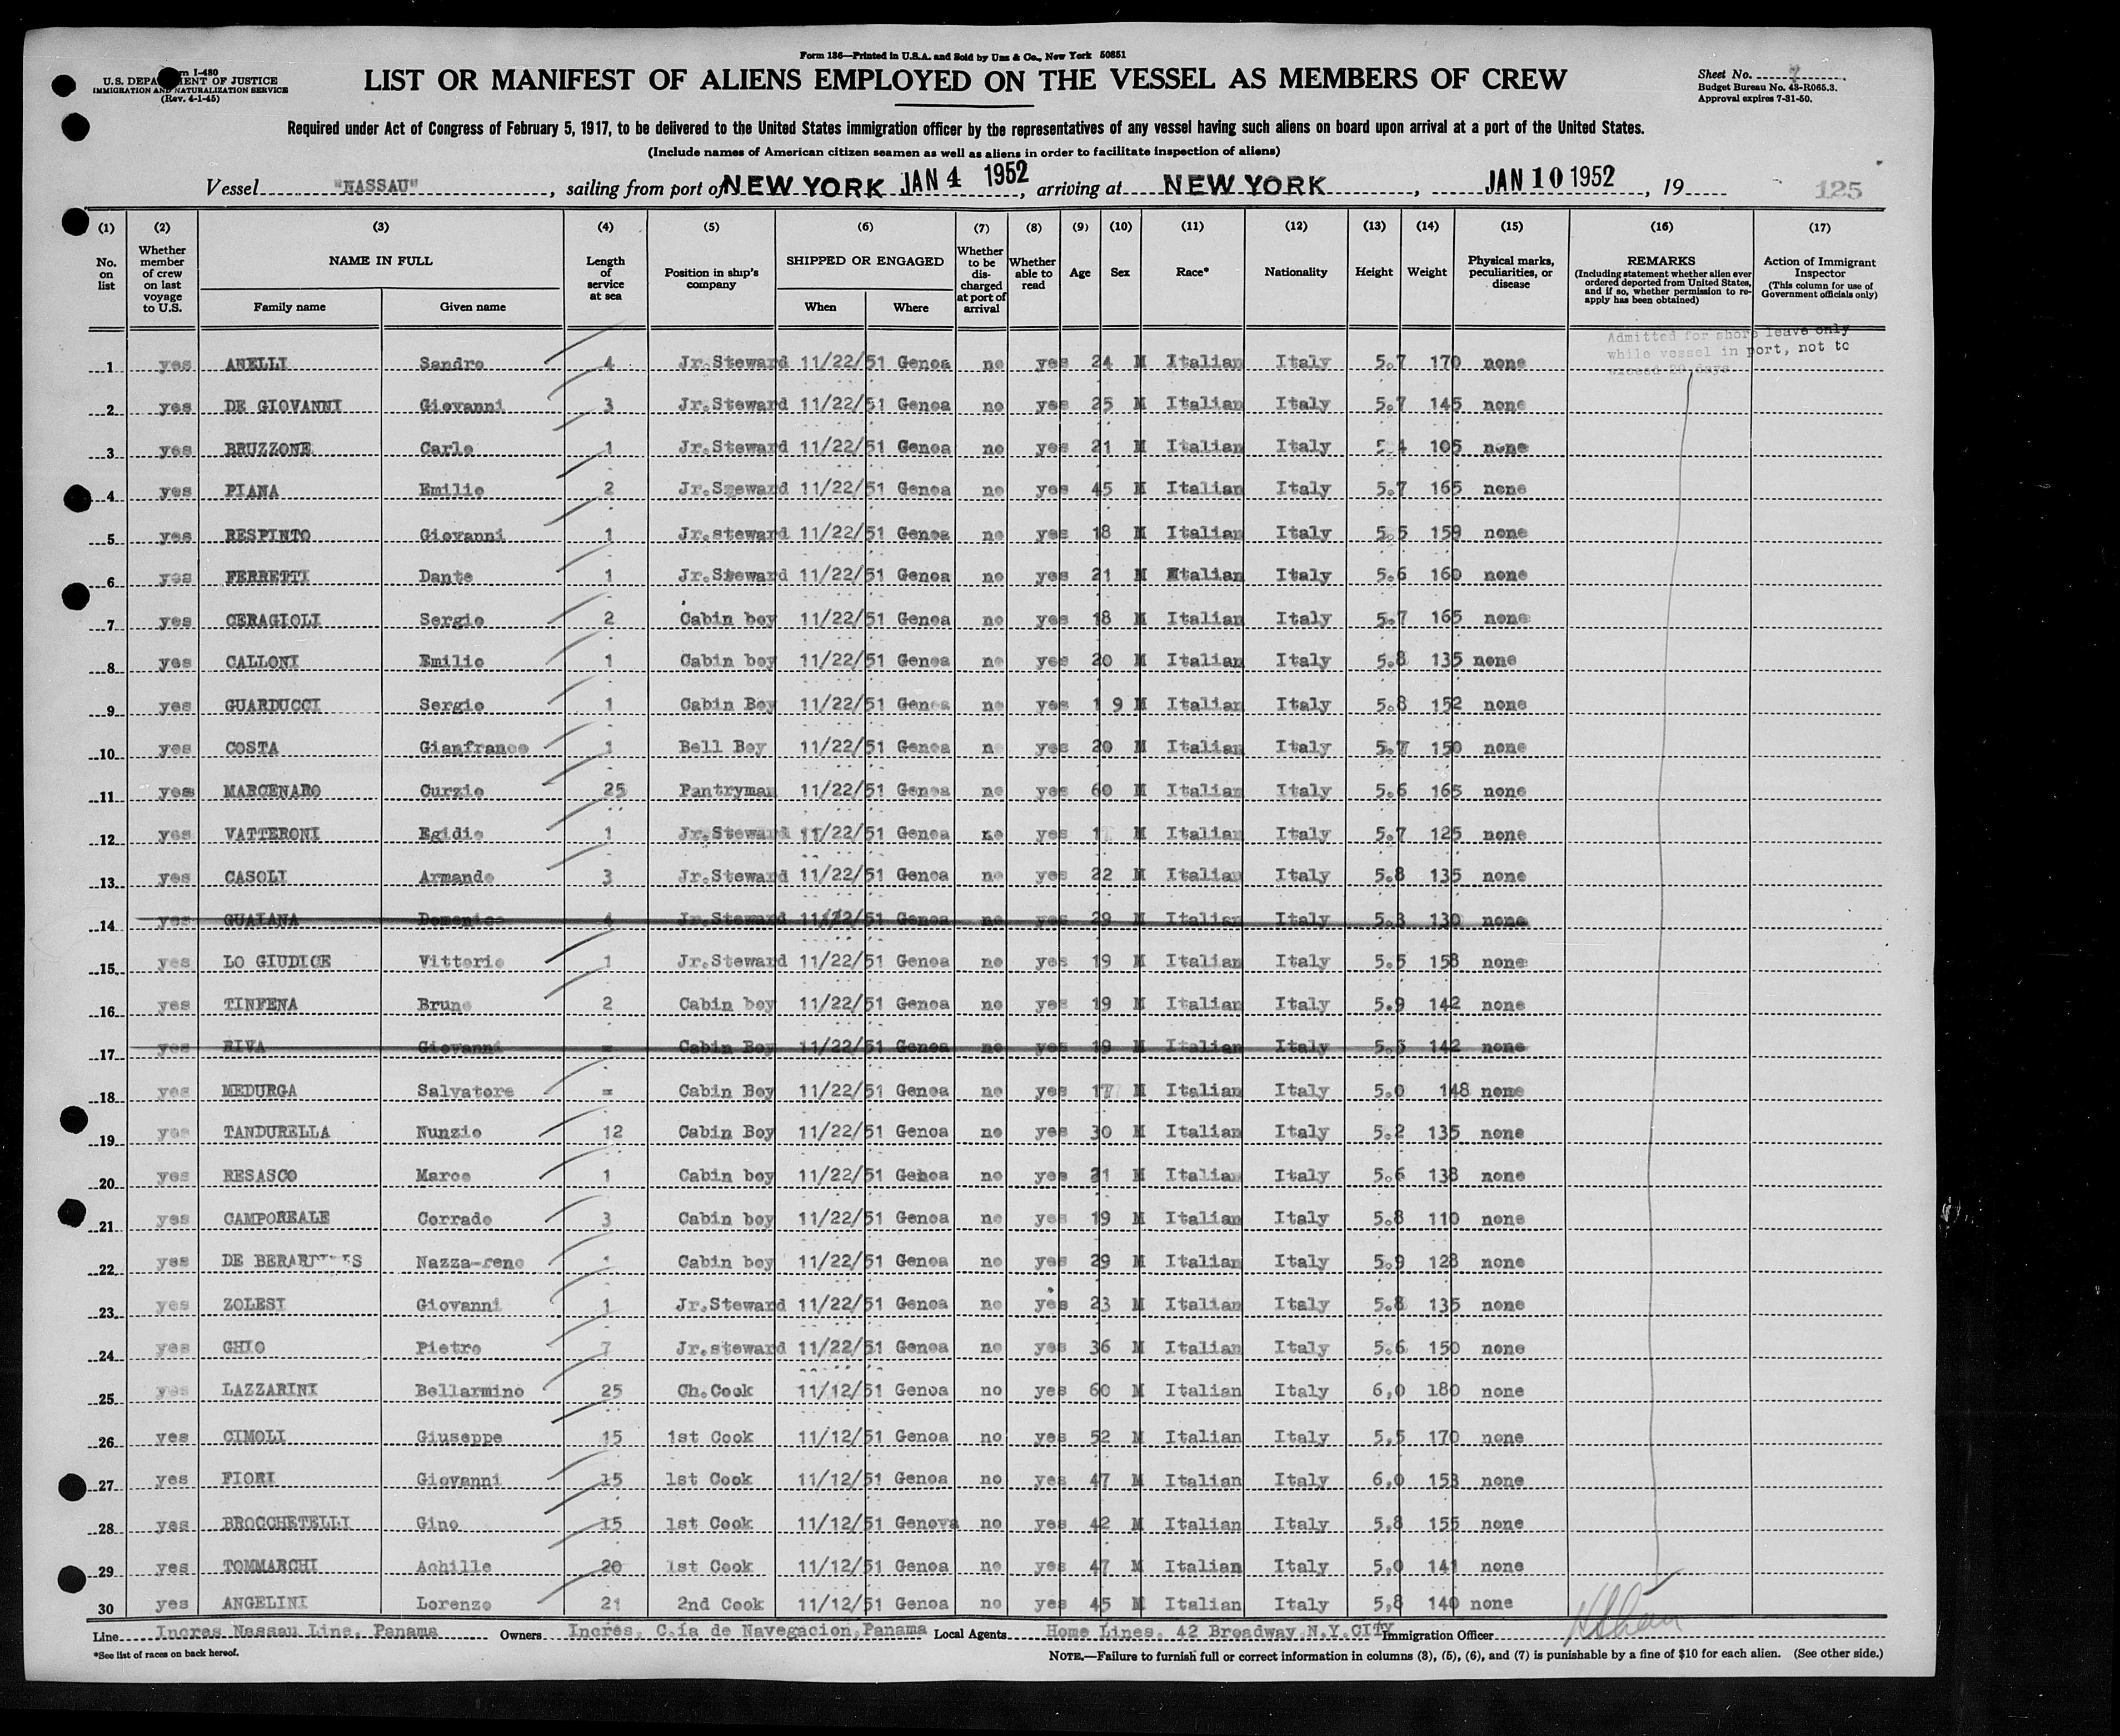 Form 136—Printed in U.S.A. and Sold by Unz & Co., New York 50851
I-480
U.S. DEPA ENT OF JUSTICE
IMMIGRATION AND NATURALIZATION SERVICE
(Rev. 4-1-45)
LIST OR MANIFEST OF ALIENS EMPLOYED ON THE VESSEL AS MEMBERS OF CREW
Sheet No. 7
Budget Bureau No. 43-R065.3.
Approval expires 7-31-50.
Required under Act of Congress of February 5, 1917, to be delivered to the United States immigration officer by the representatives of any vessel having such aliens on board upon arrival at a port of the United States.
(Include names of American citizen seamen as well as aliens in order to facilitate inspection of aliens)
Vessel "NASSAU", sailing from port of NEW YORK JAN 4 1952, arriving at NEW YORK, JAN 10 1952, 19 125
(1) (2) (3) (4) (5) (6) (7) (8) (9) (10) (11) (12) (13) (14) (15) (16) (17)
No. on list
Whether member of crew on last voyage to U.S.
NAME IN FULL
Family name Given name
Length of service at sea
Position in ship's company
SHIPPED OR ENGAGED
When Where
Whether to be discharged at port of arrival
Whether able to read
Age
Sex
Race*
Nationality
Height
Weight
Physical marks, peculiarities, or disease
REMARKS
(Including statement whether alien ever ordered deported from United States, and if so, whether permission to re-apply has been obtained)
Action of Immigrant Inspector
(This column for use of Government officials only)
Admitted for shore leave only
while vessel in port, not to
exceed 29 days
1 yes ANELLI Sandro 4 Jr.Steward 11/22/51 Genoa no yes 24 M Italian Italy 5.7 170 none
2 yes DE GIOVANNI Giovanni 3 Jr.Steward 11/22/51 Genoa no yes 25 M Italian Italy 5.7 145 none
3 yes BRUZZONE Carlo 1 Jr.Steward 11/22/51 Genoa no yes 21 M Italian Italy 5 4 105 none
4 yes PIANA Emilio 2 Jr.Steward 11/22/51 Genoa no yes 45 M Italian Italy 5.7 165 none
5 yes RESPINTO Giovanni 1 Jr.steward 11/22/51 Genoa no yes 18 M Italian Italy 5.5 159 none
6 yes FERRETTI Dante 1 Jr.Steward 11/22/51 Genoa no yes 21 M Italian Italy 5.6 160 none
7 yes CERAGIOLI Sergio 2 Cabin boy 11/22/51 Genoa no yes 18 M Italian Italy 5.7 165 none
8 yes CALLONI Emilio 1 Cabin boy 11/22/51 Genoa no yes 20 M Italian Italy 5.8 135 none
9 yes GUARDUCCI Sergio 1 Cabin Boy 11/22/51 Genoa no yes 1 9 M Italian Italy 5.8 152 none
10 yes COSTA Gianfranco 1 Bell Boy 11/22/51 Genoa n yes 20 M Italian Italy 5.7 150 none
11 yes MARCENARO Curzio 25 Pantryman 11/22/51 Genoa no yes 60 M Italian Italy 5.6 165 none
12 yes VATTERONI Egidio 1 Jr.Steward 11/22/51 Genoa no yes M Italian Italy 5.7 125 none
13 yes CASOLI Armando 3 Jr.Steward 11/22/51 Genoa no yes 22 M Italian Italy 5.8 135 none
14 yes GUAIANA Domenico 4 Jr.Steward 11/22/51 Genoa no yes 29 M Italian Italy 5.3 130 none
15 yes LO GIUDICE Vittorio 1 Jr.Steward 11/22/51 Genoa no yes 19 M Italian Italy 5.5 158 none
16 yes TINFENA Bruno 2 Cabin boy 11/22/51 Genoa no yes 19 M Italian Italy 5.9 142 none
17 yes RIVA Giovanni = Cabin Boy 11/22/51 Genoa no yes 19 M Italian Italy 5.5 142 none
18 yes MEDURGA Salvatore = Cabin Boy 11/22/51 Genoa no yes 17 M Italian Italy 5.0 148 none
19 yes TANDURELLA Nunzio 12 Cabin Boy 11/22/51 Genoa no yes 30 M Italian Italy 5.2 135 none
20 yes RESASCO Marco 1 Cabin boy 11/22/51 Genoa no yes 21 M Italian Italy 5.6 138 none
21 yes CAMPOREALE Corrado 3 Cabin boy 11/22/51 Genoa no yes 19 M Italian Italy 5.8 110 none
22 yes DE Nazza-reno Cabin boy 11/22/51 Genoa no yes 29 M Italian Italy 5.9 128 none
23 yes ZOLESI Giovanni 1 Jr.Steward 11/22/51 Genoa no yes 23 M Italian Italy 5.8 135 none
24 yes GHIO Pietro 7 Jr.steward 11/22/51 Genoa no yes 36 M Italian Italy 5.6 150 none
25 yes LAZZARINI Bellarmino 25 Ch.Cook 11/12/51 Genoa no yes 60 M Italian Italy 6,0 180 none
26 yes CIMOLI Giuseppe 15 1st Cook 11/12/51 Genoa no yes 52 M Italian Italy 5,5 170 none
27 yes FIORI Giovanni 15 1st Cook 11/12/51 Genoa no yes 47 M Italian Italy 6,0 153 none
28 yes BROCCHETELLI Gino 15 1st Cook 11/12/51 Genova no yes 42 M Italian Italy 5,8 155 none
29 yes TOMMARCHI Achille 20 1st Cook 11/12/51 Genoa no yes 47 M Italian Italy 5,0 141 none
30 yes ANGELINI Lorenzo 21 2nd Cook 11/12/51 Genoa no yes 45 M Italian Italy 5,8 140 none
Line Incres Nassau Line, Panama Owners Incres, C.ía de Navegacion, Panama Local Agents Home Lines. 42 Broadway N.Y.CITY Immigration Officer
*See list of races on back hereof.
NOTE.—Failure to furnish full or correct information in columns (3), (5), (6), and (7) is punishable by a fine of $10 for each alien. (See other side.)